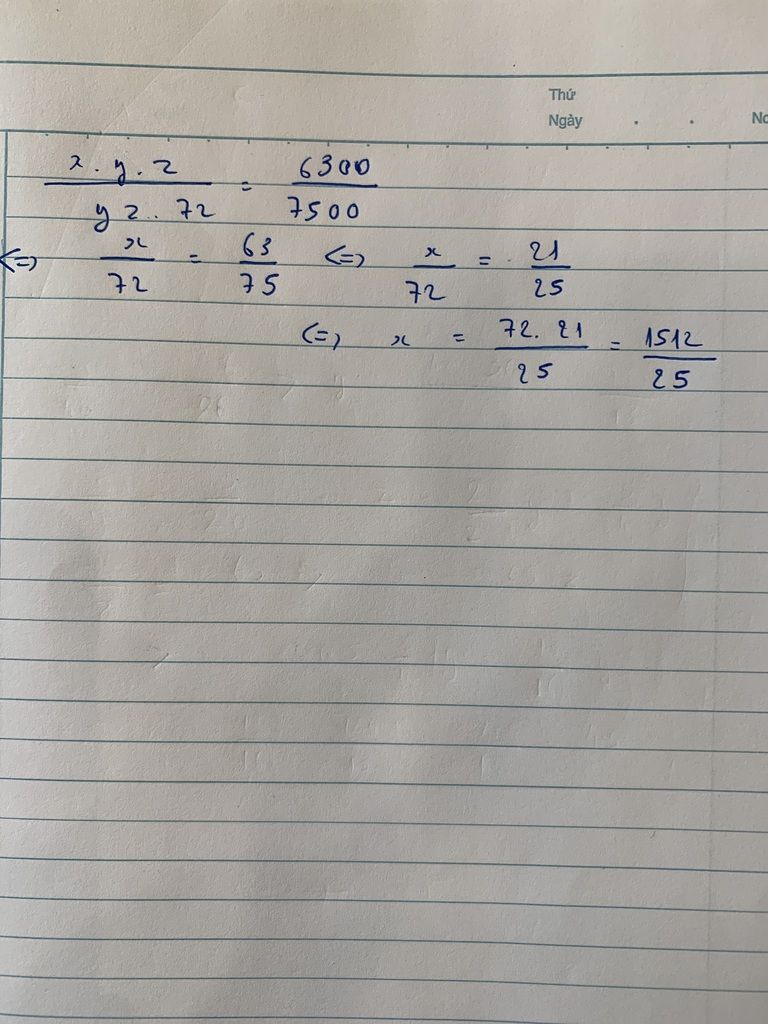 Thứ
Ngày . . No
x . y . z / y z . . 72 = 6300 / 7500
<=> x / 72 = 63 / 75 <=> x / 72 = 21 / 25
<=> x = 72 . 21 / 25 = 1512 / 25